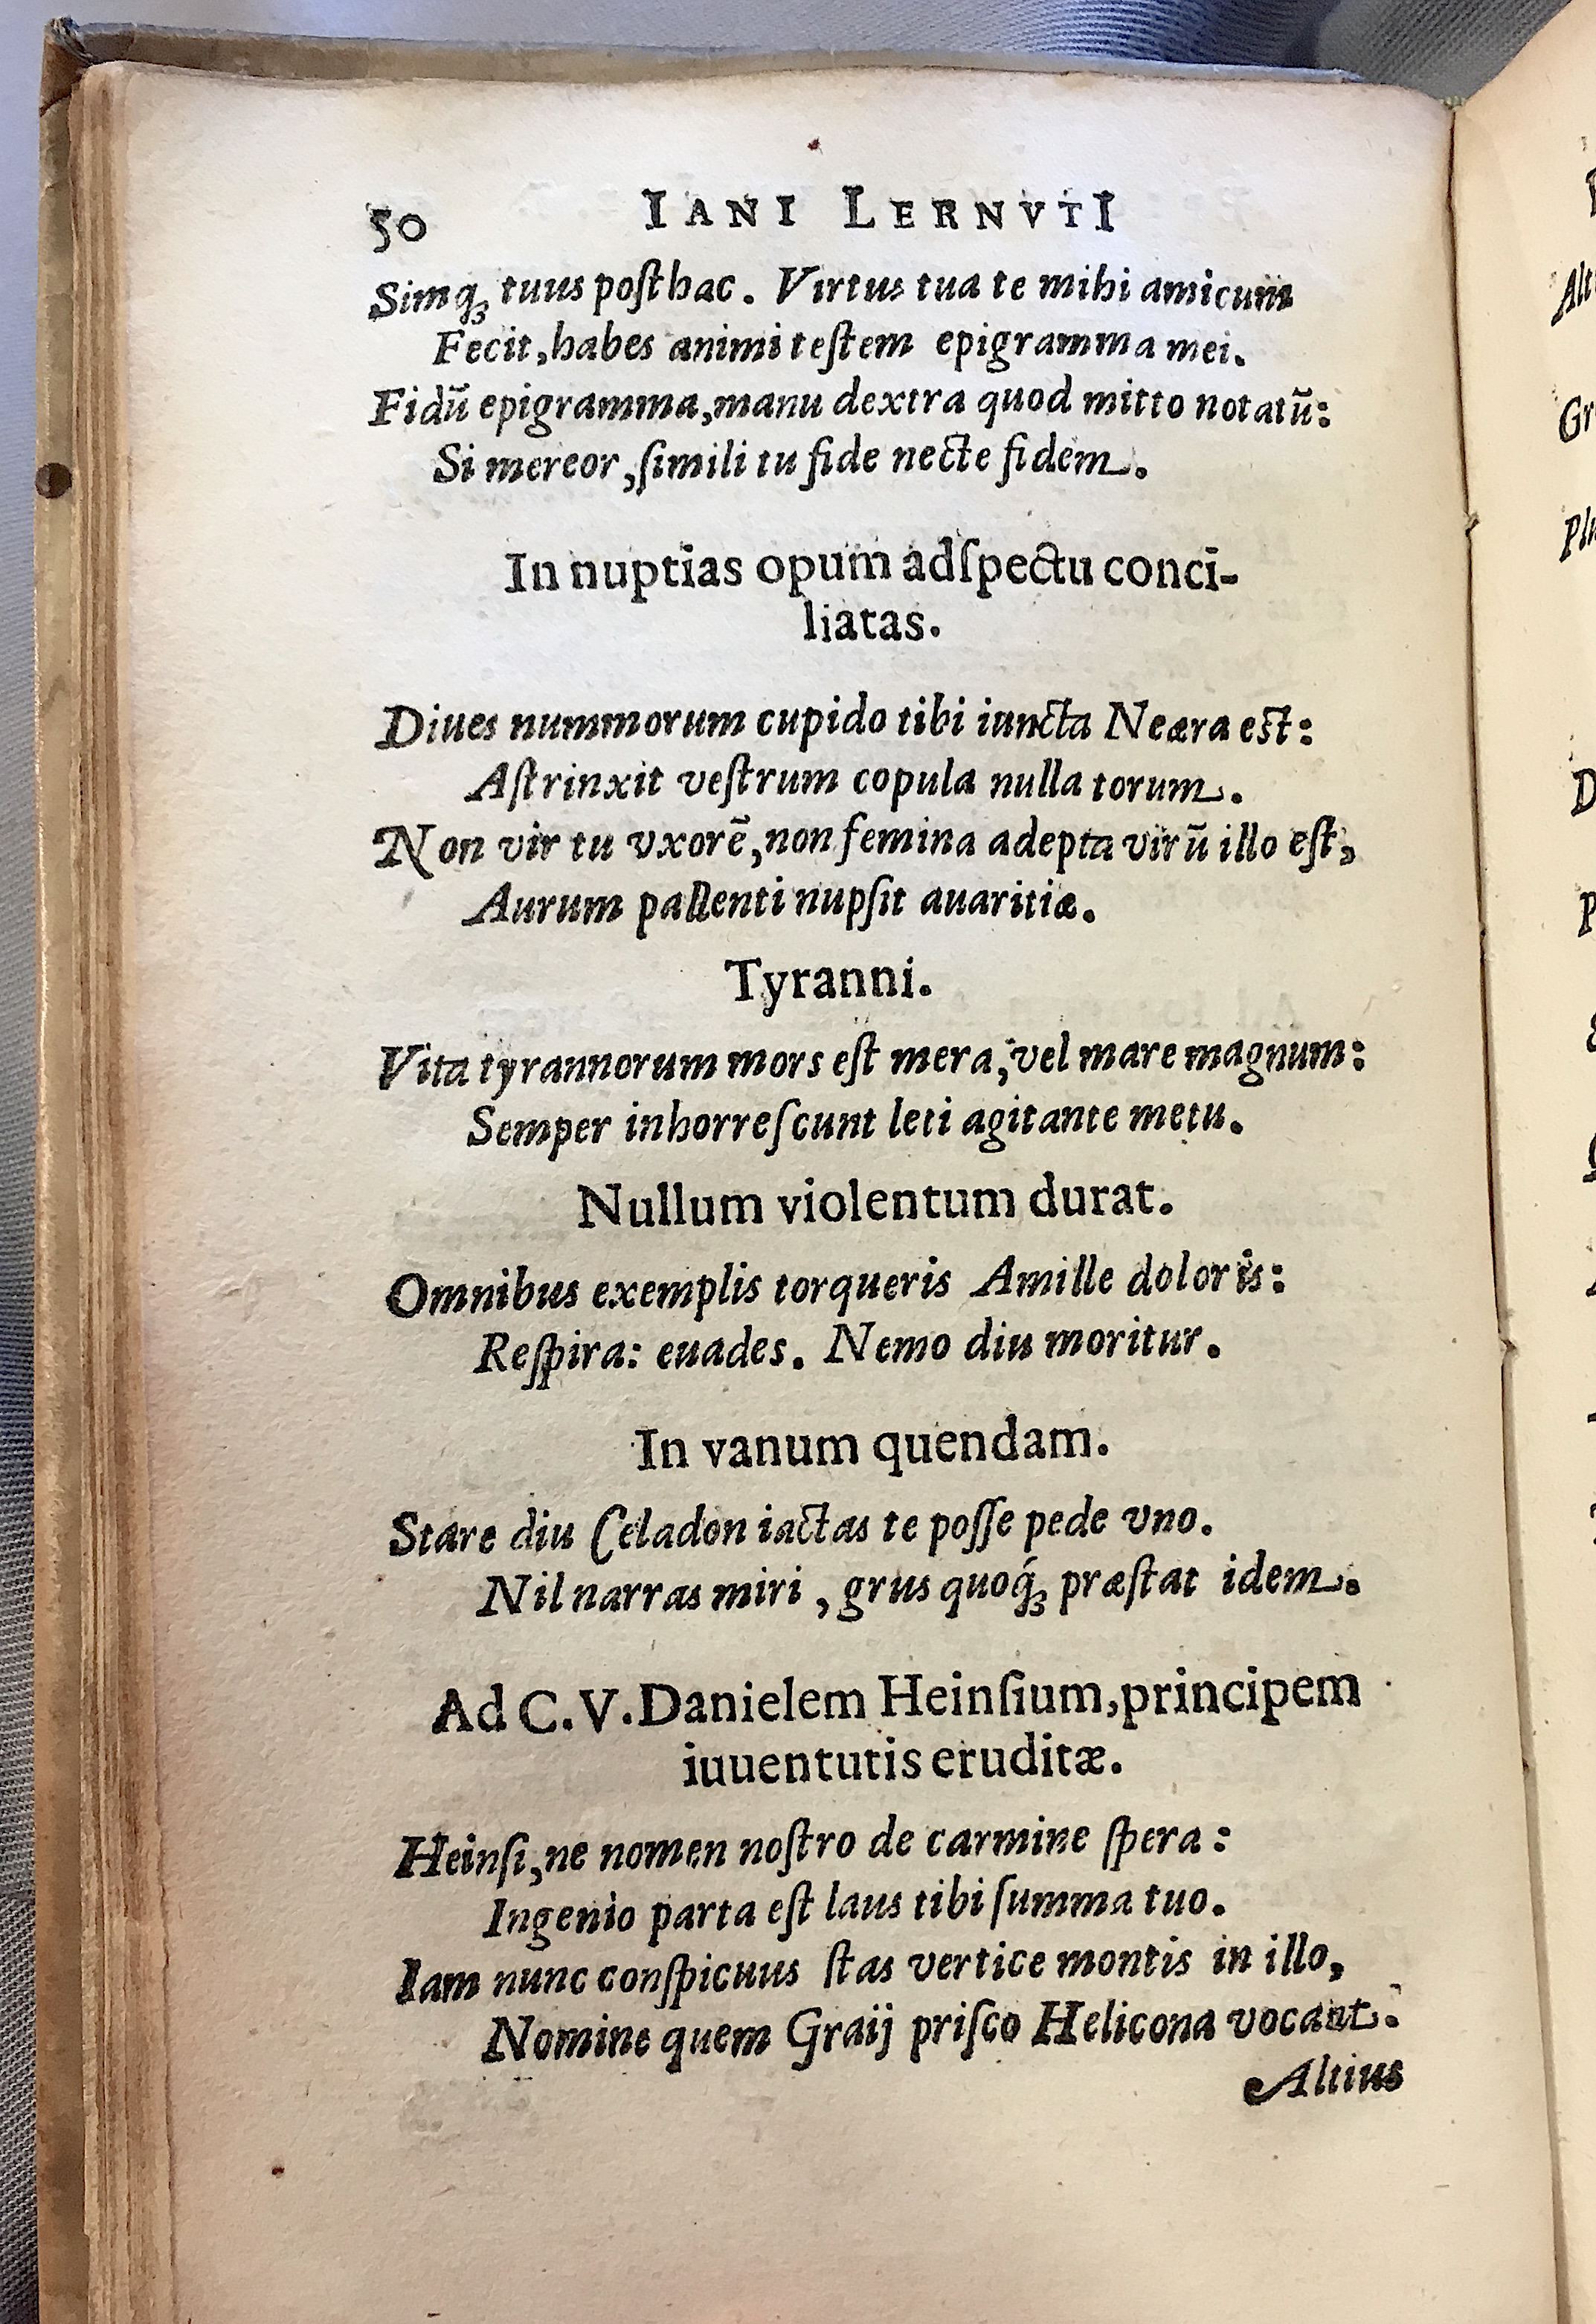 50 IANI LERNVTI
Simq́ꝫ tuus poſthac. Virtus tua te mihi amicum
Fecit, habes animi teſtem epigramma mei.
Fidū epigramma, manu dextra quod mitto notatū:
Si mereor, ſimili tu fide necte fidem.
In nuptias opum adſpectu conci-
liatas.
Diues nummorum cupido tibi iuncta Neæra est:
Aſtrinxit veſtrum copula nulla torum.
Non vir tu vxorē, non femina adepta virū illo eſt,
Aurum pallenti nupſit auaritiæ.
Tyranni.
Vita tyrannorum mors eſt mera, vel mare magnum:
Semper inhorreſcunt leti agitante metu.
Nullum violentum durat.
Omnibus exemplis torqueris Amille doloris:
Reſpira: euades. Nemo diu moritur.
In vanum quendam.
Stare diu Celadon iactas te poſſe pede vno.
Nil narras miri, grus quoq́ꝫ præſtat idem.
Ad C. V. Danielem Heinſium, principem
iuuentutis eruditæ.
Heinſi, ne nomen noſtro de carmine ſpera:
Ingenio parta eſt laus tibi ſumma tuo.
Iam nunc conſpicuus ſtas vertice montis in illo,
Nomine quem Graij priſco Helicona vocant.
Altius